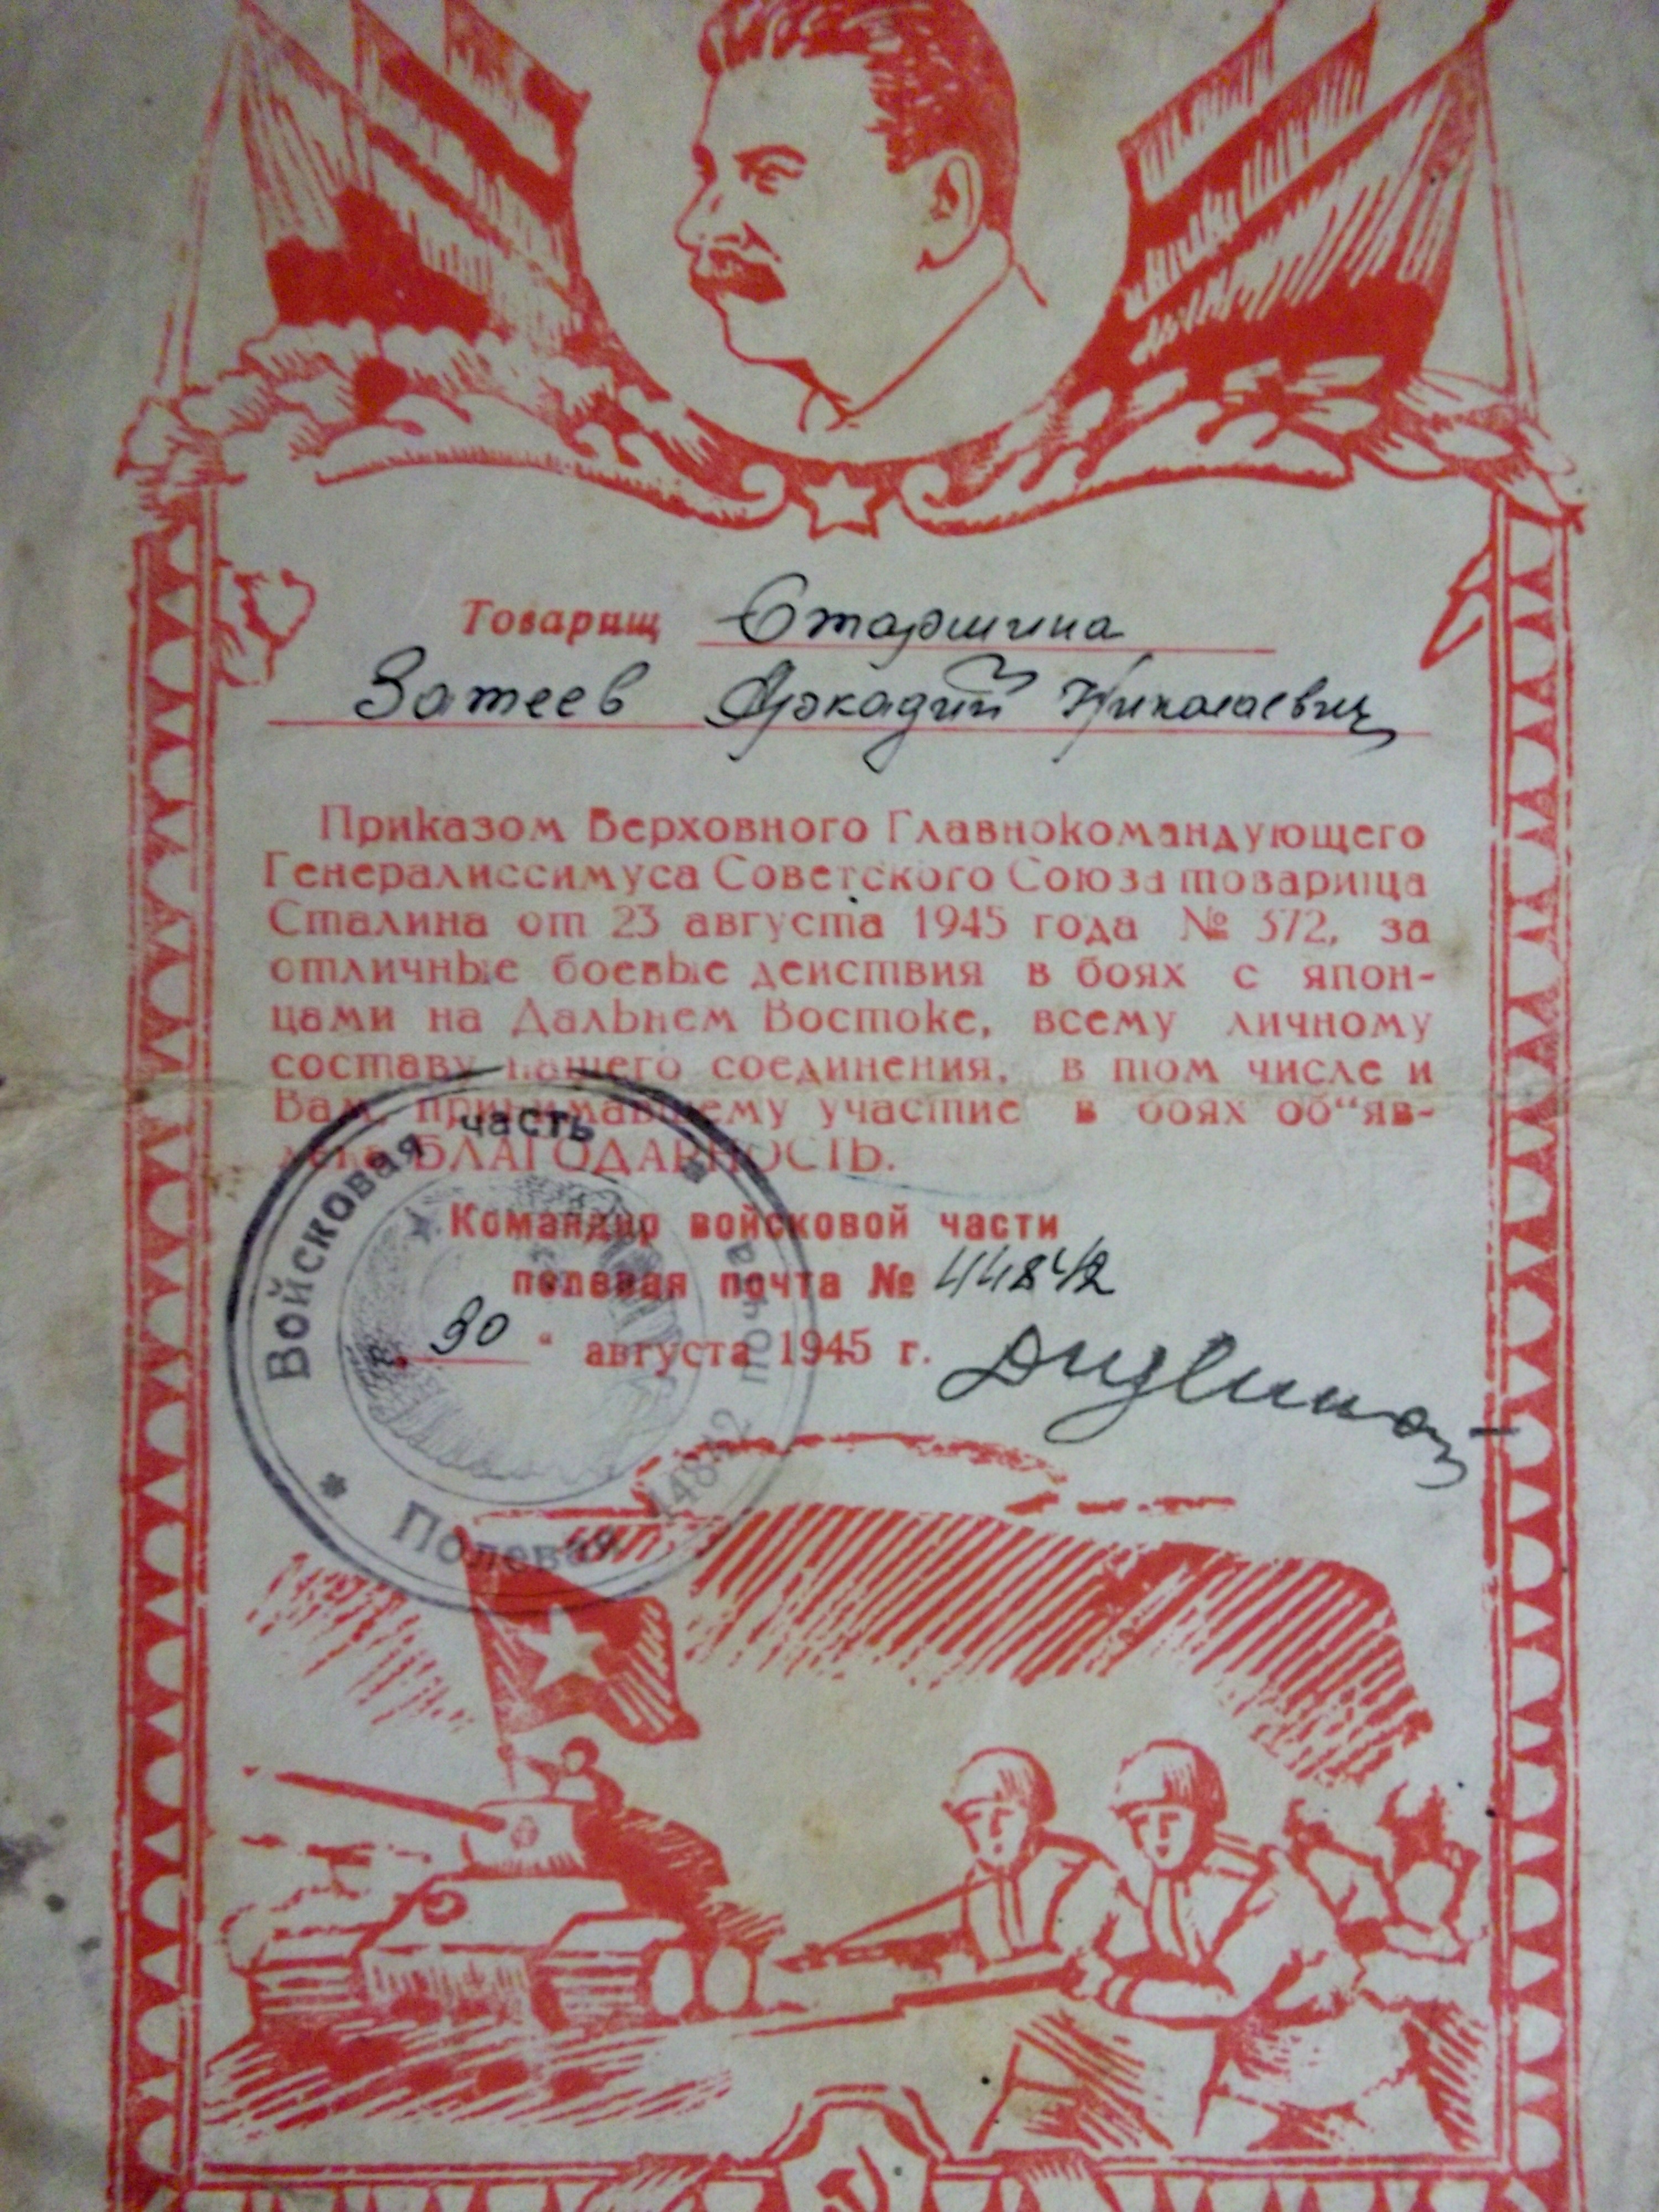 Товарищ Старшина
Затеев Аркадий Николаевич
Приказом Верховного Главнокомандующего
Генералиссимуса Советского Союза товарища
Сталина от 23 августа 1945 года № 372, за
отличные боевые деиствия в боях с япон-
цами на Дальнем Востоке, всему личному
составу нашего соединения, в том числе и
Вам, принимавшему участие в боях об“яв-
лена БЛАГОДАРНОСТЬ.
Командир войсковой части
полевая почта № 44842
„ 30 “ августа 1945 г.
Войсковая часть * Полевая почта 44842 *